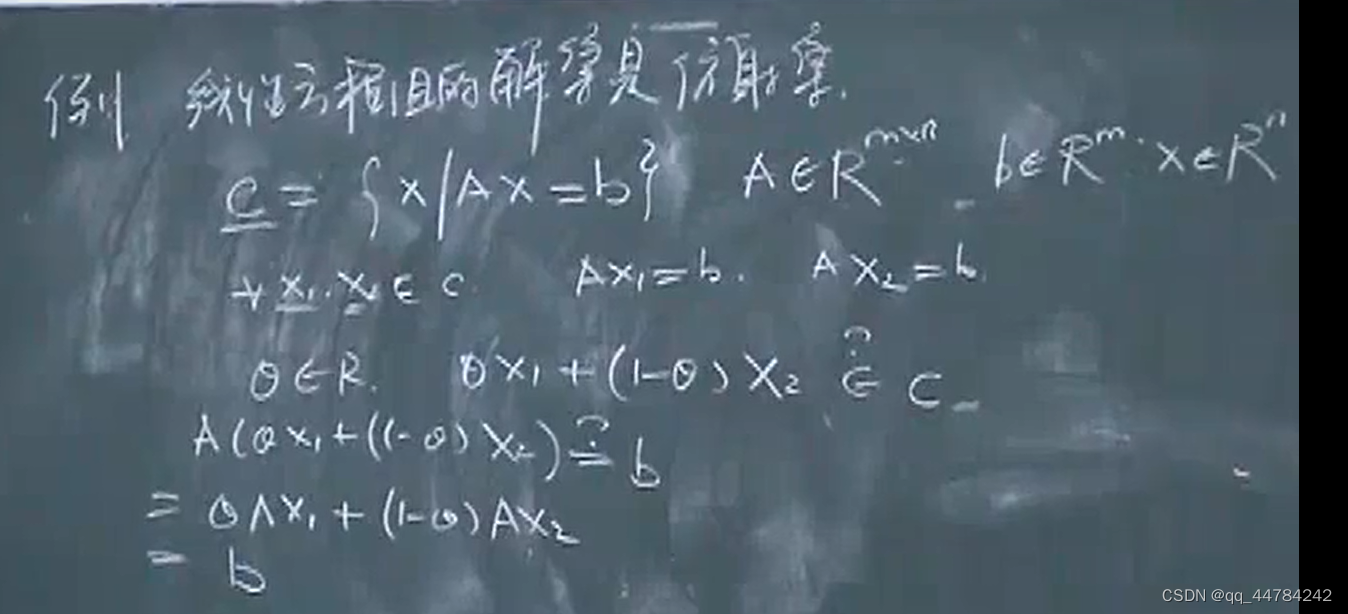 例 线性方程组的解集是仿射集.
C = {x|Ax=b} A∈R^{m×n} b∈R^m. x∈R^n
∀ x₁. x₂ ∈ C. Ax₁=b. Ax₂=b.
θ∈R. θx₁+(1-θ)x₂ ∈? C
A(θx₁+(1-θ)x₂) =? b
= θAx₁+(1-θ)Ax₂
= b
CSDN @qq_44784242